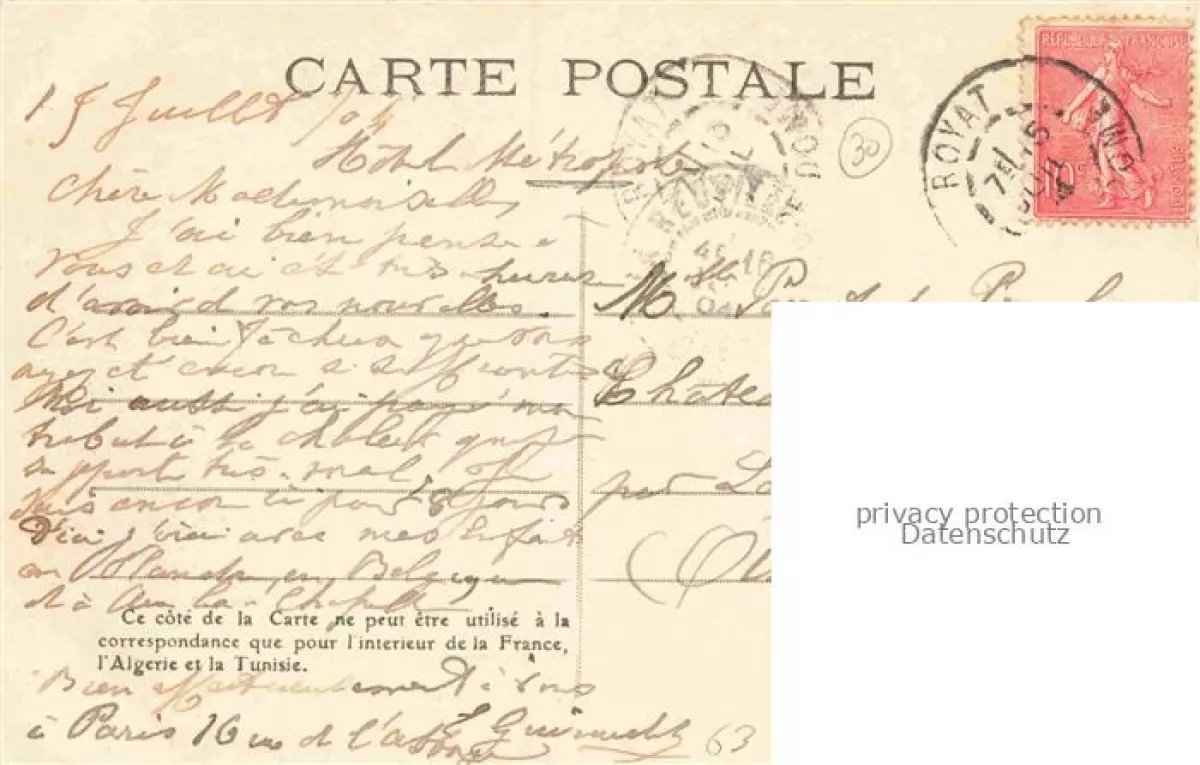 CARTE POSTALE
REPUBLIQUE FRANÇAISE
10c
ROYAT
7E 15
ROYAT
DOME
30
15 Juillet /04
Hôtel Métropole
Chère Mademoiselle,
J'ai bien pensé à
vous et ai été très heureuse
d'avoir de vos nouvelles.
C'est bien fâcheux que vous
ayez été encore si souffrante
Moi aussi j'ai payé mon
tribut à la chaleur que je
supporte très mal. Je
suis encore ici pour 8 jours
D'ici j'irai avec mes enfants
en Hollande, en Belgique
et à Aix la Chapelle
Ce côté de la Carte ne peut être utilisé à la
correspondance que pour l'interieur de la France,
l'Algerie et la Tunisie.
Bien affectueusement à vous
à Paris 16 rue de l'abbaye
63
Mlle
Châtea
par
privacy protection
Datenschutz